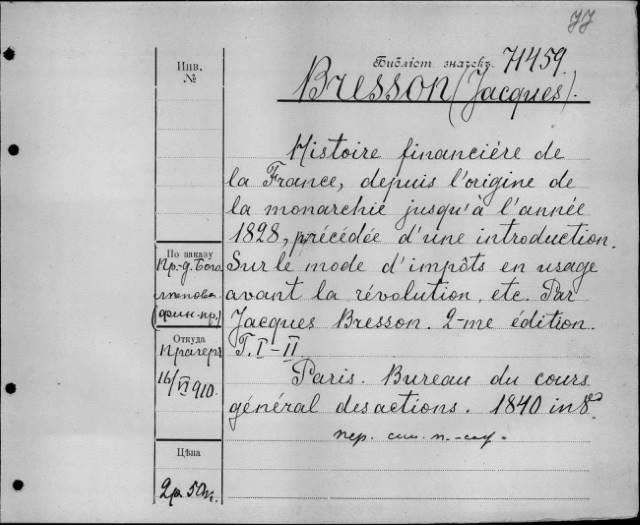 Инв.
№
Библіот. значекъ. 71459.
Bresson (Jacques).
Histoire financiére de
la France, depuis l'origine de
la monarchie jusqu'à l'année
1828, précédée d'une introduction.
Sur le mode d'impôts en usage
avant la révolution, etc. Par
Jacques Bresson. 2-me édition.
T. I–II
Paris. Bureau du cours
général des actions. 1840 in 8º
По заказу
Пр.-д. Бого
лѣпова
(фин.-пр.)
Откуда
Прагеръ
16/VI 910.
Цѣна
2р. 50к.